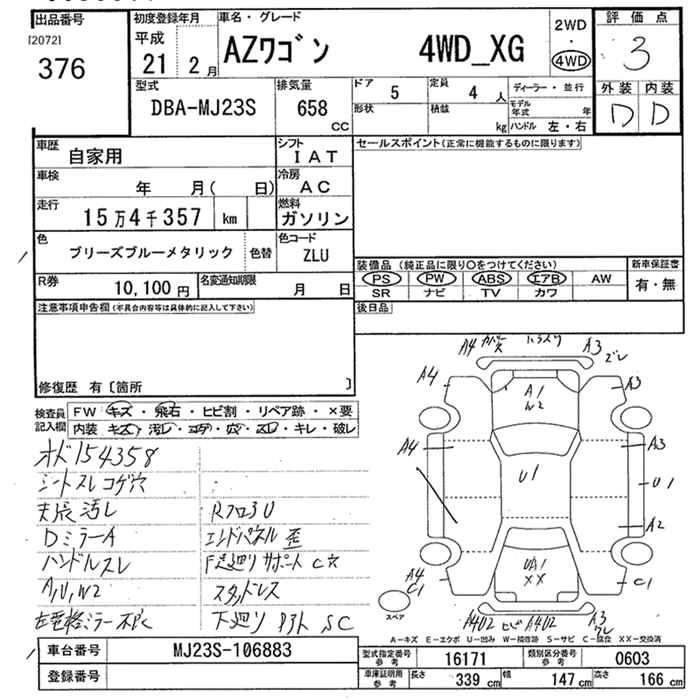 出品番号
[2072]
376
初度登録年月
平成
21 年 2 月
車名・グレード
AZワゴン 4WD_XG
2WD
・
4WD
評価点
3
外装 内装
D D
型式
DBA-MJ23S
排気量
658
CC
ドア 5
定員 4 人
形状
積載 kg
ディーラー・並行
モデル年式 年
ハンドル 左・右
車歴
自家用
シフト
IAT
車検
年 月( 日)
冷房
AC
走行
15万4千357 km
燃料
ガソリン
色
ブリーズブルーメタリック
色替
色コード
ZLU
R券
10,100円
名変通知期限
月 日
セールスポイント(正常に機能するものに限ります)
装備品 (純正品に限り○をつけてください)
PS PW ABS エアB AW
SR ナビ TV カワ
新車保証書
有・無
後日品
注意事項申告欄(不具合内容等は具体的に記入して下さい)
修復歴 有〔箇所 〕
検査員記入欄
FW キズ・飛石・ヒビ割・リペア跡・×要
内装 キズ・汚レ・コゲ・穴・スレ・キレ・破レ
オド154358
シートスレコゲ穴
天張汚レ
DミラーA
ハンドルスレ
A,U,W2
左電格ミラー不良
RフロアU
エンドパネル歪
F足廻りサポートC穴
スタッドレス
下廻り SC
A4
A3
ズレ
A4
A1
W2
A3
A4
A3
U1
U1
A2
UA1
XX
A4
C1
C1
A4U2 ヒビ A4U2
A3
スペア
A-キズ E-エクボ U-凹み W-補修跡 S-サビ C-腐食 XX-交換済
車台番号
MJ23S-106883
登録番号
型式指定番号
参考
16171
類別区分番号
参考
0603
車庫証明用
参考
長さ 339 cm
幅 147 cm
高さ 166 cm